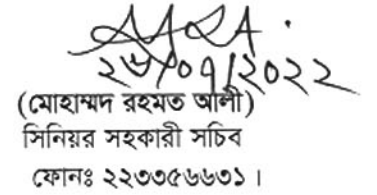 ২৬/০৭/২০২২
(মোহাম্মদ রহমত আলী)
সিনিয়র সহকারী সচিব
ফোনঃ ২২৩৩৫৬৬৩১।